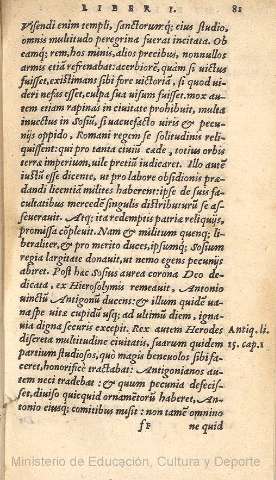 LIBER I. 81
Visendi enim templi, sanctorumq; eius studio,
omnis multitudo peregrina fuerat incitata. Ob
camq; rem, hos minis, alios precibus, nonnullos
armis etiã refrenabat: acerbiorẽ, quàm si uictus
fuisset, existimans sibi fore uictoriã, si quod ui-
deri nefas esset, culpa sua uisum fuisset. mox au-
tem etiam rapinas in ciuitate prohibuit, multa
inuectus in Sosiũ, si uacuefacto uiris & pecu-
nijs oppido, Romani regem se solitudinis reli-
quissent: qui pro tanta ciuiũ cæde, totius orbis
terræ imperium, uile pretiũ iudicaret. Illo autẽ
iustũ esse dicente, ut pro labore obsidionis præ-
dandi licentiã milites haberent: ipse de suis fa-
cultatibus mercedẽ singulis distributurũ se as-
seuerauit. Atq; ita redemptis patriæ reliquijs,
promissa cõpleuit. Nam & militum quenq; li-
beraliter, & pro merito duces, ipsumq; Sosium
regia largitate donauit, ut nemo egens pecunijs
abiret. Post hæc Sosius aurea corona Deo de-
dicata, ex Hierosolymis remeauit, Antonio
uinctũ Antigonũ ducens: & illum quidẽ ua-
naspe uitæ cupidũ usq; ad ultimũ diem, igna-
uia digna securis excepit. Rex autem Herodes Antiq. li.
discreta multitudine ciuitatis, suarum quidem 15. cap. 1
partium studiosos, quò magis beneuolos sibi fa-
ceret, honorificè tractabat: Antigonianos au-
tem neci tradebat: & quum pecunia defecis-
set, diuiso quicquid ornamẽtorũ haberet, An-
tonio eiusq; comitibus misit: non tamẽ omnino
f ne quid
Ministerio de Educación, Cultura y Deporte